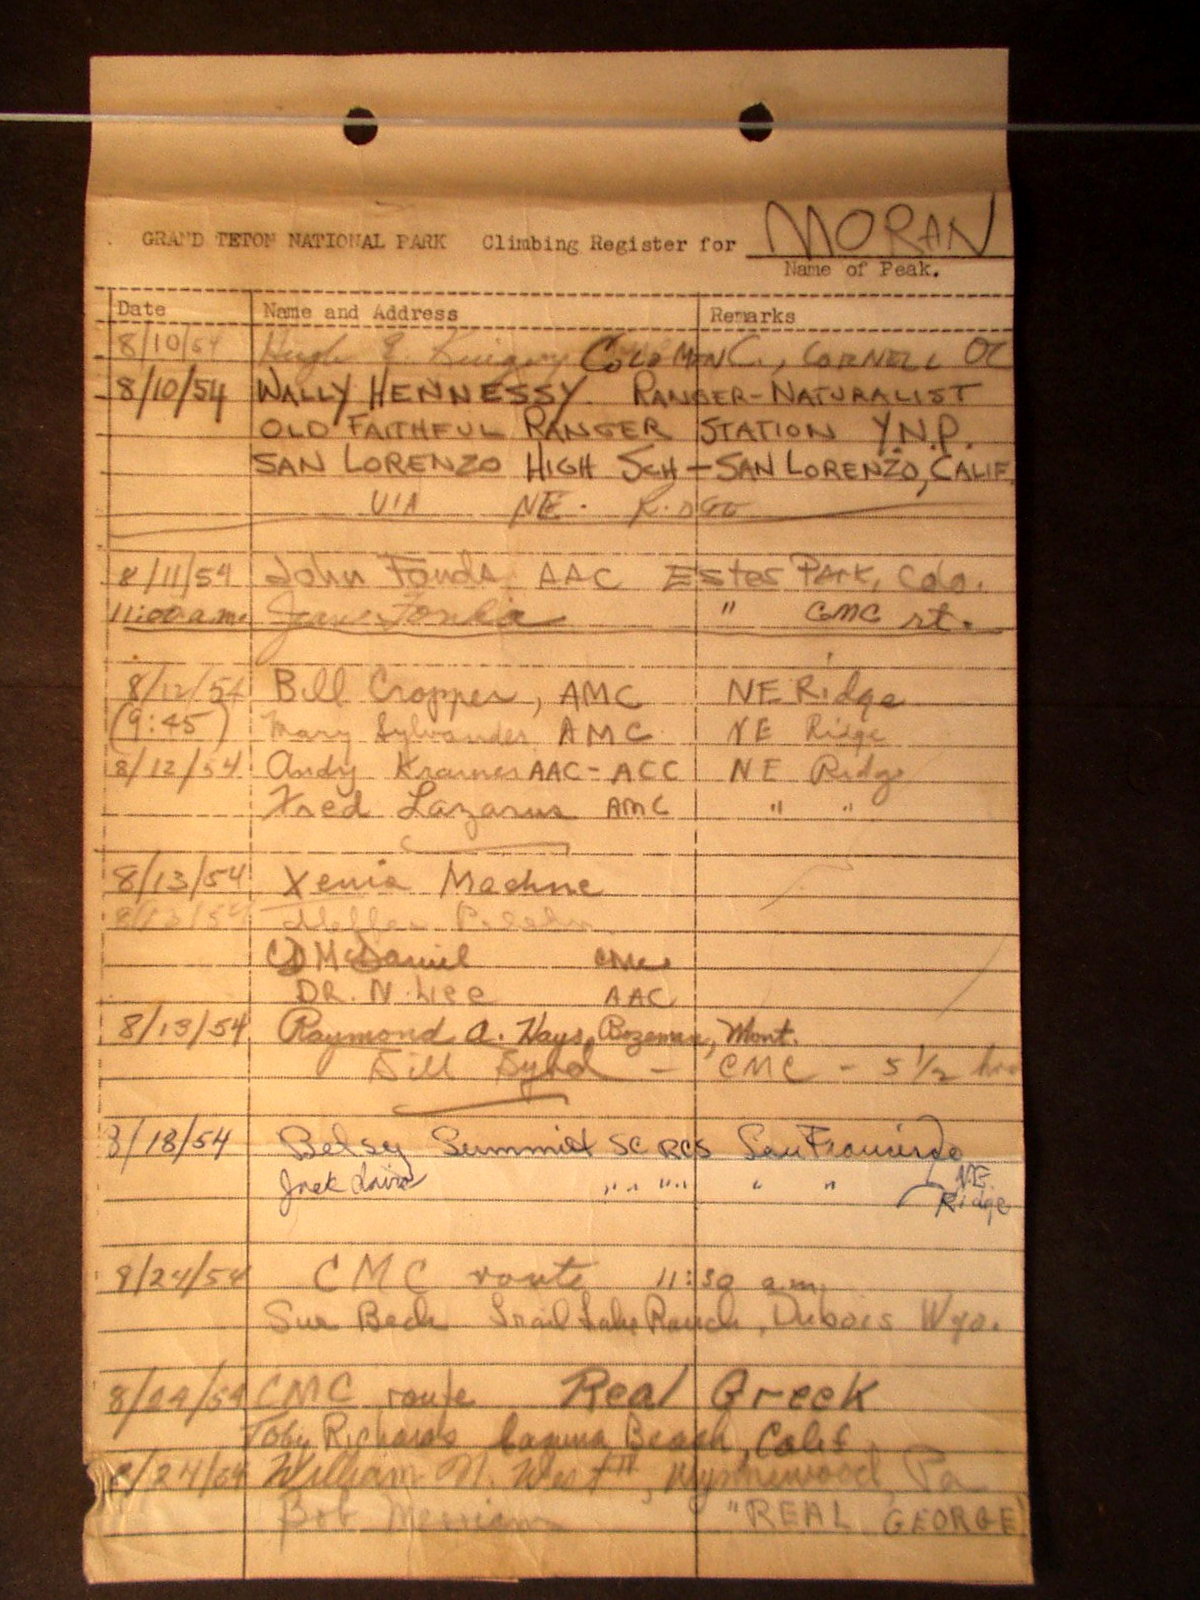 MORAN
GRAND TETON NATIONAL PARK Climbing Register for
Name of Peak.
Date Name and Address Remarks
8/10/54 Hugh E. COLO MTN C., CORNELL OC
8/10/54 WALLY HENNESSY RANGER-NATURALIST
OLD FAITHFUL RANGER STATION Y.N.P.
SAN LORENZO HIGH SCH - SAN LORENZO, CALIF.
VIA NE. Ridge
8/11/54 John Fonda AAC Estes Park, Colo.
11:00 a.m. Jane Fonda " CMC rt.
8/12/54 Bill Cropper, AMC NE Ridge
(9:45) Mary Sylvander AMC NE Ridge
8/12/54 Andy AAC-ACC NE Ridge
Fred Lazarus AMC " "
8/13/54 Xenia
8/13/54
CD McDaniel CMC
DR. N. Lee AAC
8/13/54 Raymond A. Hays, Bozeman, Mont.
Bill Byrd - CMC - 5 1/2 hrs
8/18/54 Betsy Summit SC RCS San Francisco
Jack Davis " " " " " " NE.
Ridge
8/24/54 CMC route 11:30 a.m.
Sue Beck Trail Lake Ranch, Dubois Wyo.
8/24/54 CMC route Real Greek
Toby Richards Laguna Beach, Calif
8/24/54 William N. West , Wynnewood, Pa
Bob Merriam "REAL GEORGE"